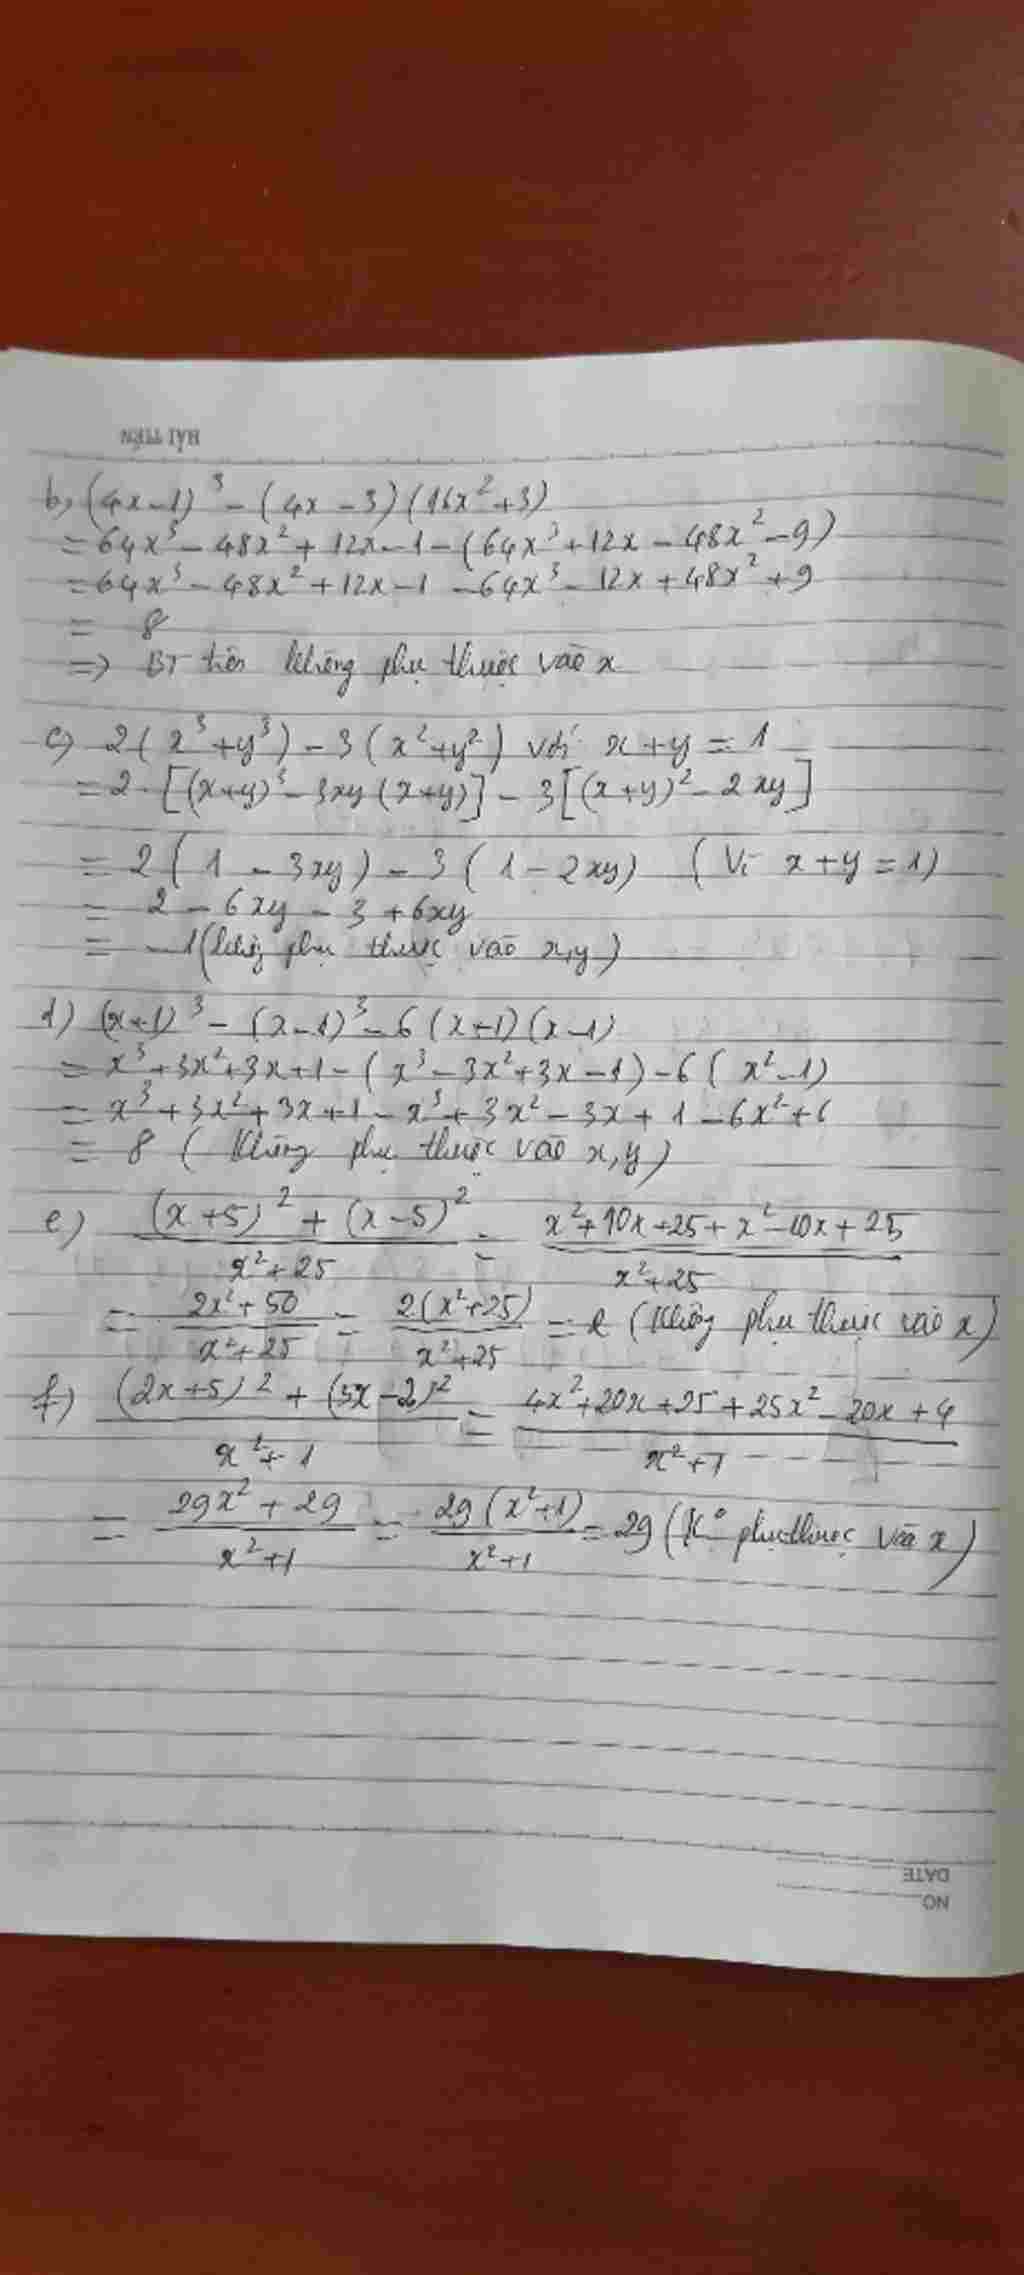 HẢI TIẾN
b, (4x-1)³ - (4x-3)(16x²+3)
= 64x³ - 48x² + 12x - 1 - (64x³ + 12x - 48x² - 9)
= 64x³ - 48x² + 12x - 1 - 64x³ - 12x + 48x² + 9
= 8
=> BT trên không phụ thuộc vào x
c) 2(x³+y³) - 3(x²+y²) với x+y = 1
= 2·[(x+y)³ - 3xy(x+y)] - 3[(x+y)² - 2xy]
= 2(1 - 3xy) - 3(1 - 2xy) (Vì x+y = 1)
= 2 - 6xy - 3 + 6xy
= -1 (không phụ thuộc vào x,y)
d) (x+1)³ - (x-1)³ - 6(x+1)(x-1)
= x³ + 3x² + 3x + 1 - (x³ - 3x² + 3x - 1) - 6(x² - 1)
= x³ + 3x² + 3x + 1 - x³ + 3x² - 3x + 1 - 6x² + 6
= 8 (Không phụ thuộc vào x,y)
e) (x+5)² + (x-5)² / x²+25 = x²+10x+25+x²-10x+25 / x²+25
= 2x²+50 / x²+25 = 2(x²+25) / x²+25 = 2 (Không phụ thuộc vào x)
f) (2x+5)² + (5x-2)² / x²+1 = 4x²+20x+25+25x²-20x+4 / x²+1
= 29x²+29 / x²+1 = 29(x²+1) / x²+1 = 29 (K° phụ thuộc vào x)
DATE
NO